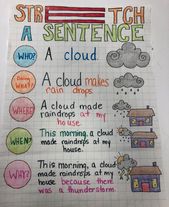 STRETCH
A SENTENCE
WHO? A cloud.
Doing WHAT? A cloud makes
rain drops
WHERE? A cloud made
raindrops at my
house.
WHEN? This morning, a cloud
made raindrops at my
house.
WHY? This morning, a cloud
made raindrops at my
house because there
was a thunderstorm.